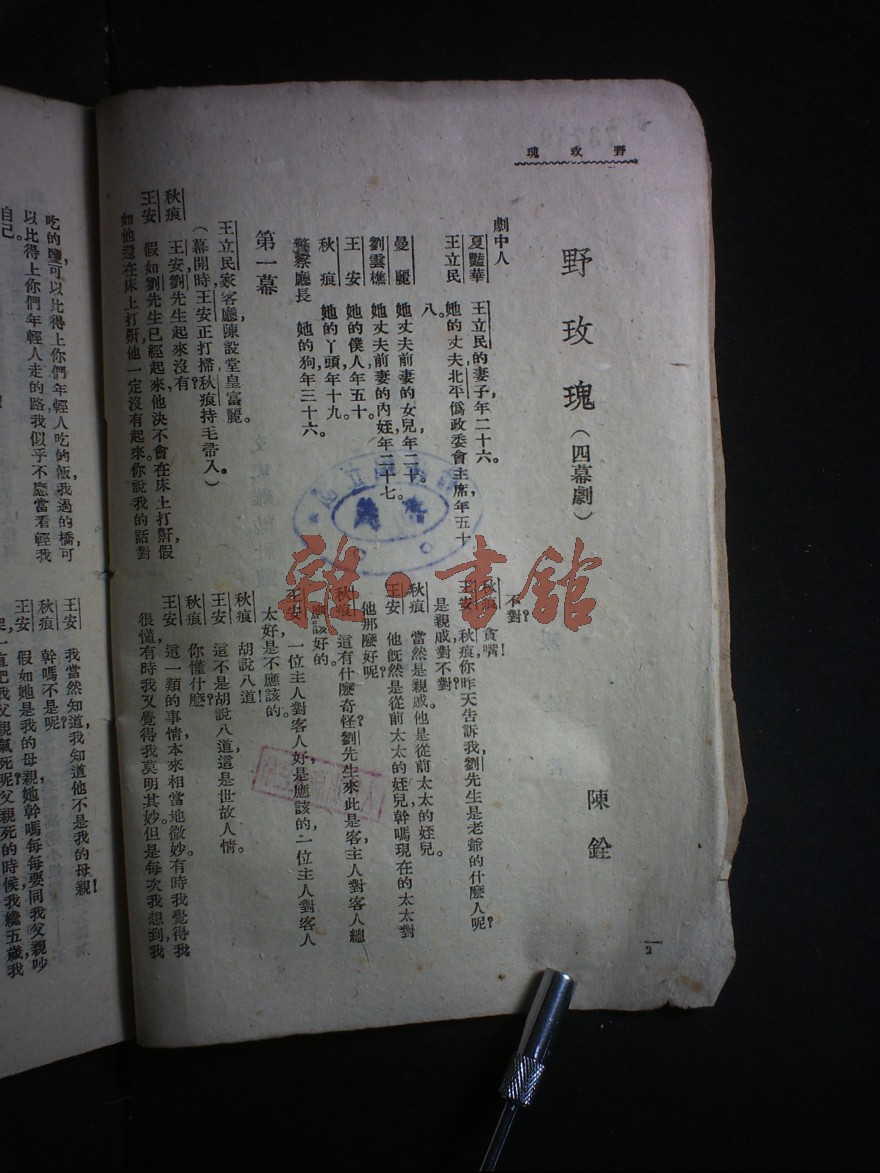 野玫瑰
2
野玫瑰（四幕劇）
陳銓
劇中人
夏豔華　王立民的妻子年二十六。
王立民　她的丈夫北平僞政委會主席，年五十
八。
曼麗　她丈夫前妻的女兒年二十。
劉雲樵　她丈夫前妻的內姪年二十七。
王安　她的僕人年五十。
秋痕　她的丫頭年十九。
警察廳長　她的狗，年三十六。
第一幕
王立民家客廳，陳設堂皇富麗。
（幕開時王安正打掃，秋痕持毛帚入。）
秋痕　王安，劉先生起來沒有？
王安　假如劉先生已經起來，他決不會在床上打鼾，假
如他還在床上打鼾他一定沒有起來。你說我的話對
不對？
秋痕　貧嘴！
王安　秋痕，你昨天告訴我，劉先生是老爺的什麼人呢？
是親戚對不對？
秋痕　當然是親戚，他是從前太太的姪兒。
王安　他旣然是從前太太的姪兒，幹嗎現在的太太對
他那麼好呢？
秋痕　這有什麼奇怪？劉先生來此是客，主人對客人總
應該好的。
王安　一位主人對客人好是應該的，一位主人對客人
太好是不應該的。
秋痕　胡說八道！
王安　這不是胡說八道，這是世故人情。
秋痕　你懂什麼？
王安　這一類的事情，本來相當地微妙。有時我覺得我
很懂，有時我又覺得我莫明其妙。但是每次我想到，我
吃的鹽，可以比得上你們年輕人吃的飯，我過的橋，可
以比得上你們年輕人走的路，我似乎不應當看輕我
自己。
王安　我當然知道，我知道他不是我的母親！
秋痕　幹嗎不是呢？
王安　假如她是我的母親，她幹嗎每每要同我父親吵
把我父親氣死呢？父親死的時候，我纔五歲，我
雜·書館